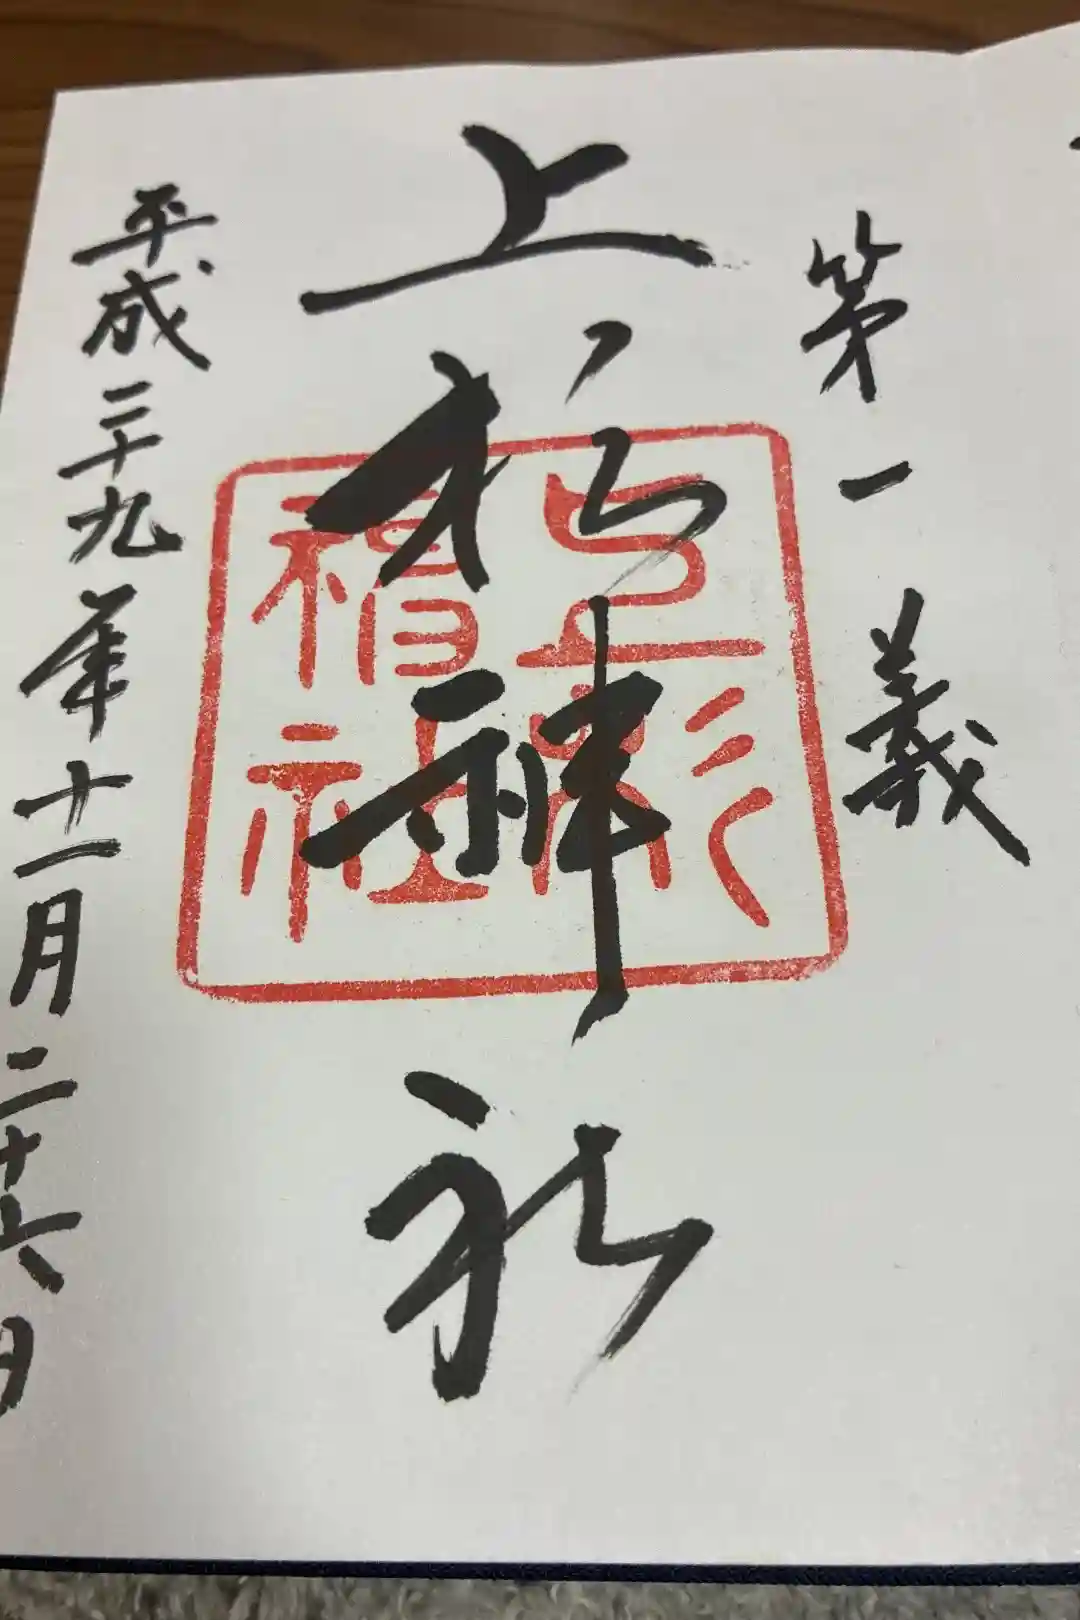 第一義
上杉神社
平成二十九年十一月二十六日